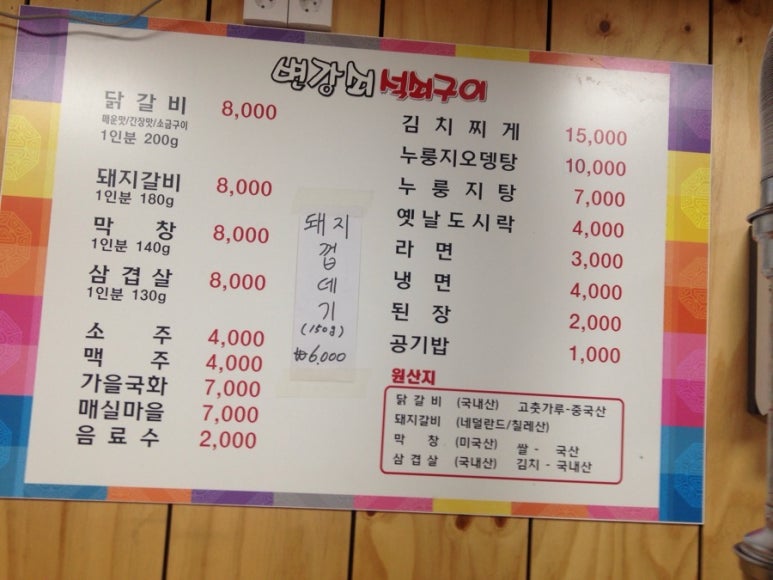 변강쇠 석쇠구이
닭갈비 8,000
매운맛/간장맛/소금구이
1인분 200g
돼지갈비 8,000
1인분 180g
막창 8,000
1인분 140g
삼겹살 8,000
1인분 130g
소주 4,000
맥주 4,000
가을국화 7,000
매실마을 7,000
음료수 2,000
돼지
껍
데
기
(150g)
₩6,000
김치찌게 15,000
누룽지오뎅탕 10,000
누룽지탕 7,000
옛날도시락 4,000
라면 3,000
냉면 4,000
된장 2,000
공기밥 1,000
원산지
닭갈비 (국내산) 고춧가루-중국산
돼지갈비 (네덜란드/칠레산)
막창 (미국산) 쌀 - 국산
삼겹살 (국내산) 김치 - 국내산